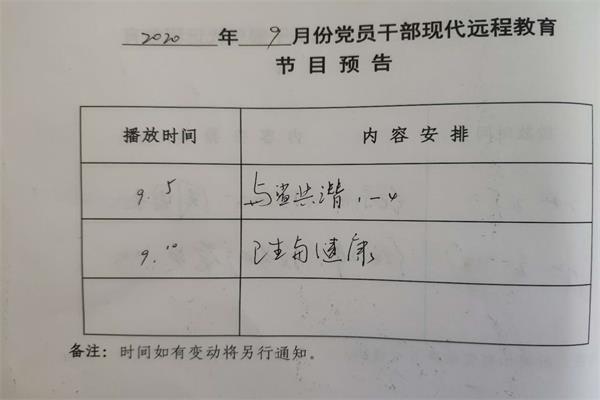 2020 年 9 月份党员干部现代远程教育
节目预告
播放时间 内容安排
9.5 与鲨共潜 1-4
9.10 卫生与健康
备注：时间如有变动将另行通知。